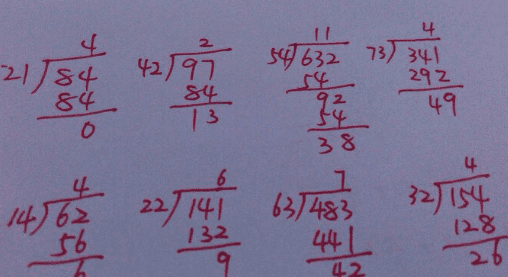 4 2 11 4
21)84 42)97 54)632 73)341
84 84 54 292
0 13 92 49
54
38
4 6 7 4
14)62 22)141 63)483 32)154
56 132 441 128
6 9 42 26